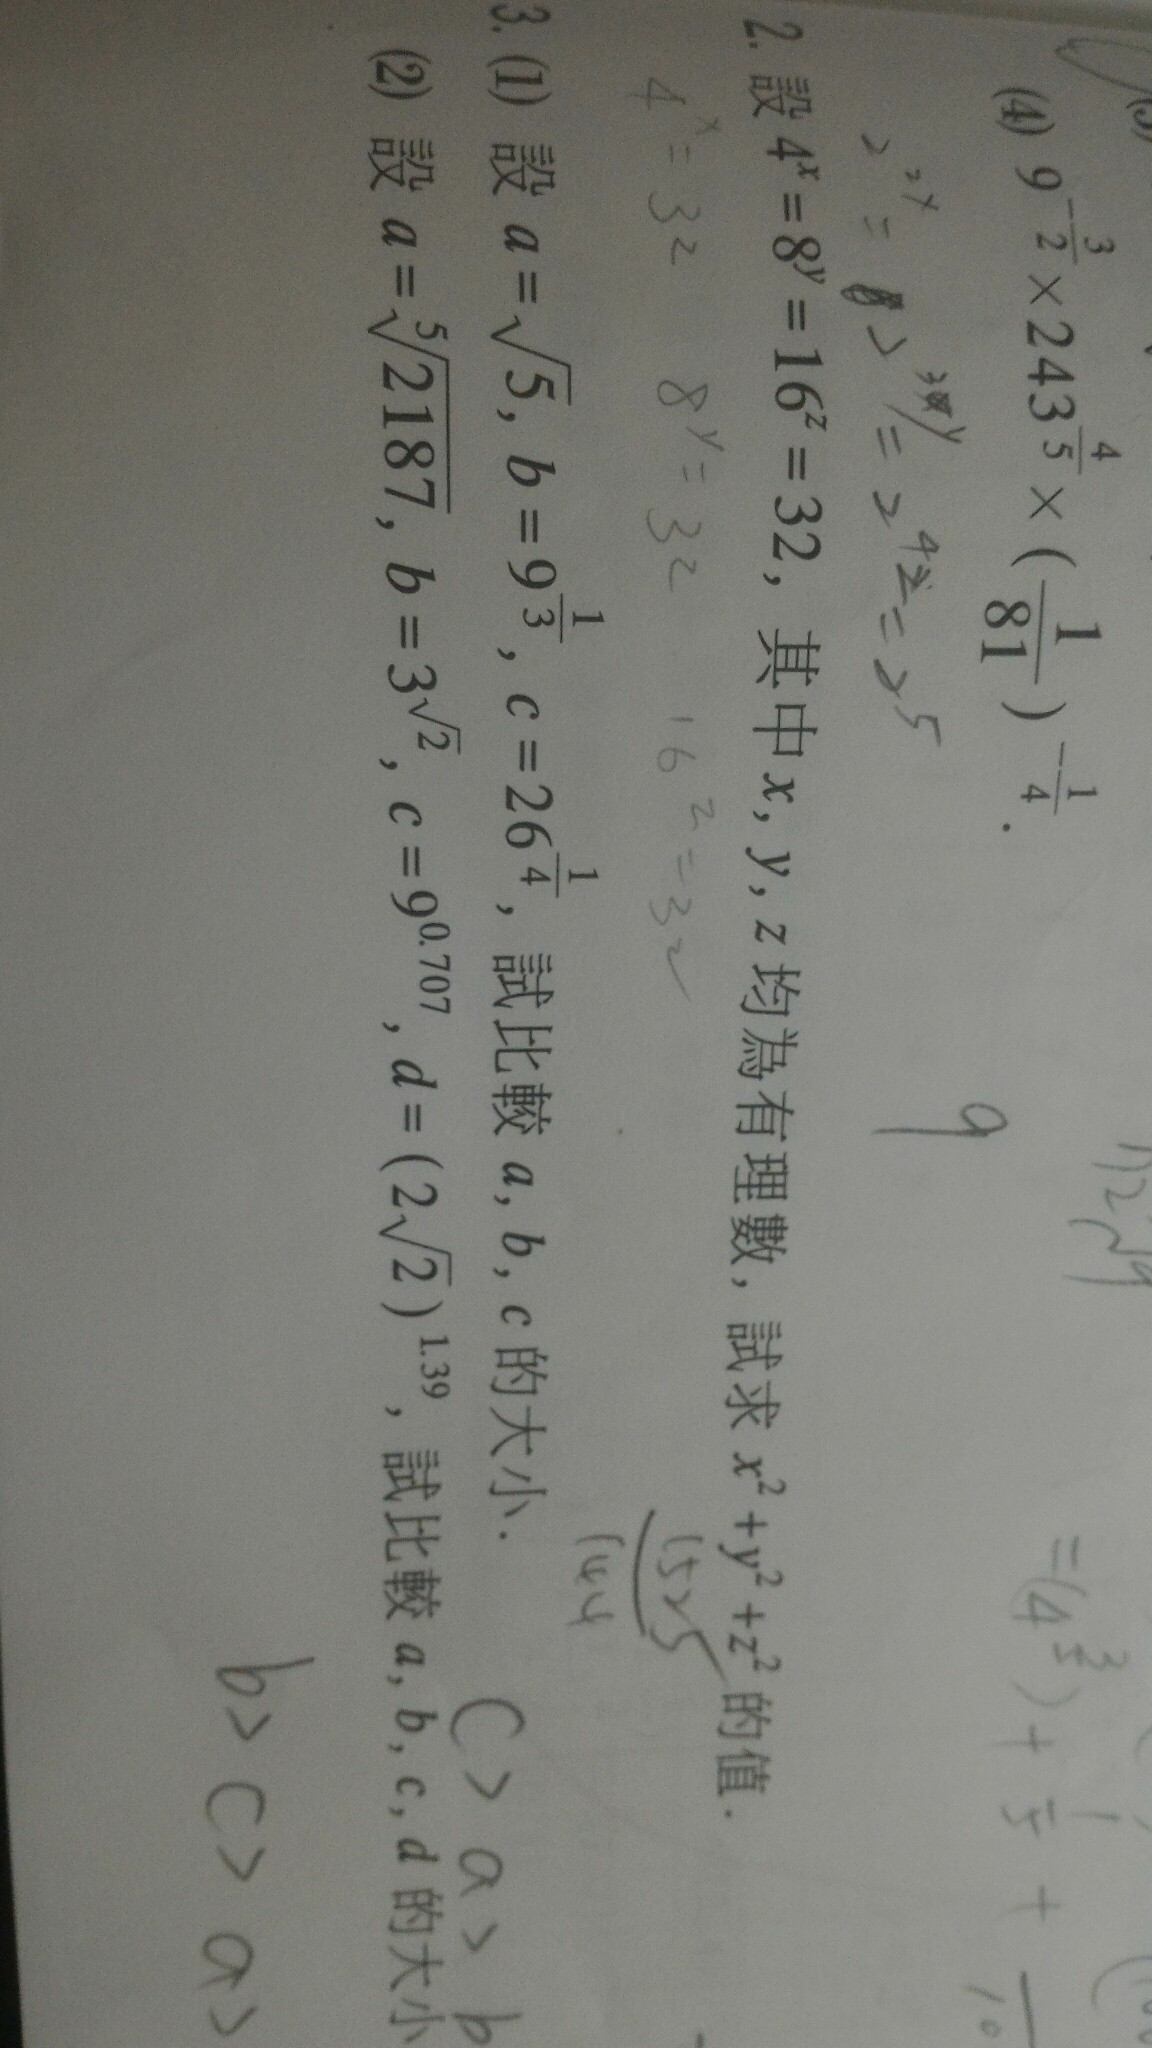 (4) 9^{-\frac{3}{2}} × 243^{\frac{4}{5}} × (\frac{1}{81})^{-\frac{1}{4}}.
9
= (4^{\frac{3}{2}}) +
2^{2x} = 2^{3y} = 2^{4z} = 2^5
2. 設 4^x = 8^y = 16^z = 32, 其中 x, y, z 均為有理數, 試求 x² + y² + z² 的值.
4^x = 32 8^y = 32 16^z = 32
1525
144
3. (1) 設 a = √5, b = 9^{\frac{1}{3}}, c = 26^{\frac{1}{4}}, 試比較 a, b, c 的大小.
c > a > b
(2) 設 a = ⁵√2187, b = 3^{√2}, c = 9^{0.707}, d = (2√2)^{1.39}, 試比較 a, b, c, d 的大小
b > c > a >